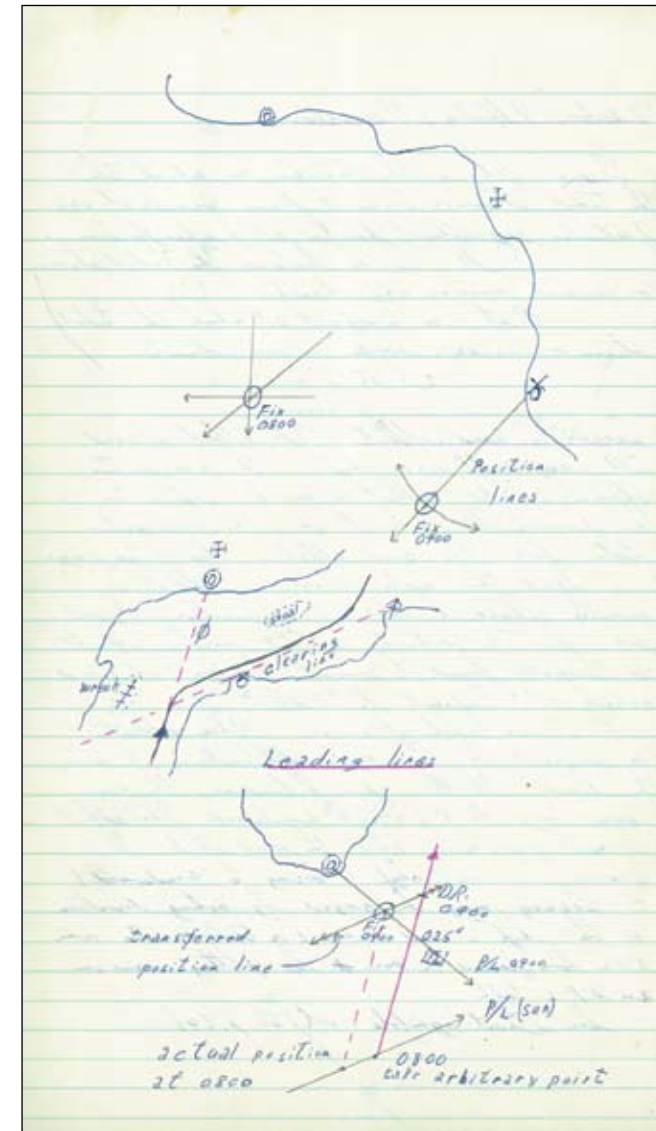 Fix
0800
Position
lines
Fix
0900
shoal
clearing
line
wreck
Leading lines
D.R.
0900
Fix
0900
025°
transferred
position line
P/L 0900
P/L (sun)
actual position
at 0800
0800
take arbitrary point